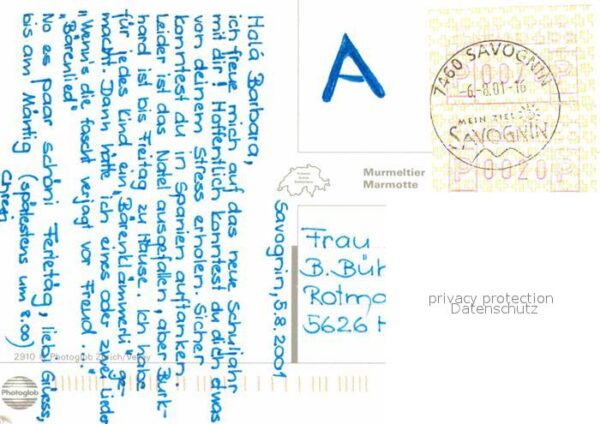 Savognin, 5.8.2001
Holá Barbara,
ich freue mich auf das neue Schuljahr
mit dir! Hoffentlich konntest du dich etwas
von deinem Stress erholen. Sicher
konntest du in Spanien auftanken.
Leider ist das Natel ausgefallen, aber Burk-
hard ist bis Freitag zu Hause. Ich habe
für jedes Kind ein "Bärenklämmerli" ge-
macht. Dann hätte ich eines oder zwei Lieder
"Wenn's die fascht verjagt vor Freud ..."
"Bärenlied"
No es paar schöni Ferietäg, liebi Grüess,
bis am Mäntig (spätestens um 8.00)
A
7460 SAVOGNIN
-6.-8.01-16
MEIN ZIEL
SAVOGNIN
P 0020 P
Murmeltier
Marmotte
Frau
B. Büh
Rotma
5626 H
privacy protection
Datenschutz
2910 © Photoglob Zürich/Vevey
Photoglob